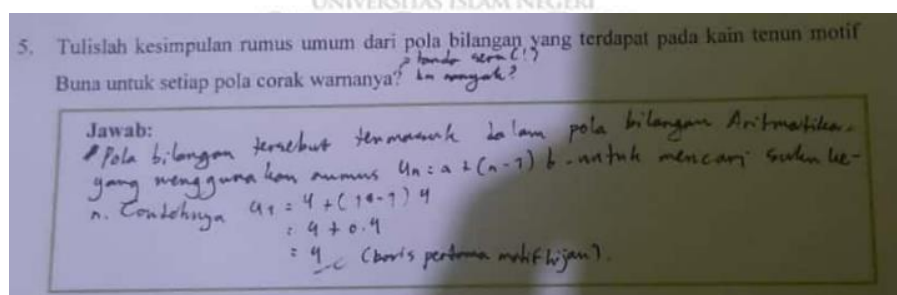 UNIVERSITAS ISLAM NEGERI
5. Tulislah kesimpulan rumus umum dari pola bilangan yang terdapat pada kain tenun motif
tanda seru (!)
Buna untuk setiap pola corak warnanya?
Jawab:
Pola bilangan tersebut termasuk dalam pola bilangan Aritmatika.
yang menggunakan rumus Un = a + (n-1) b. untuk mencari suku ke-
n. Contohnya U1 = 4 + (1-1) 4
= 4 + 0.4
= 4 (baris pertama motif hijau).